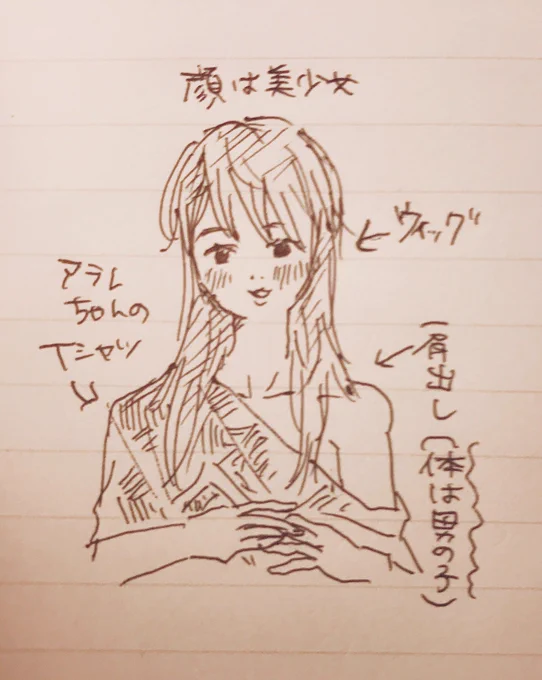 顔は美少女
ウィッグ
アラレ
ちゃんの
Tシャツ
肩出し(体は男の子)